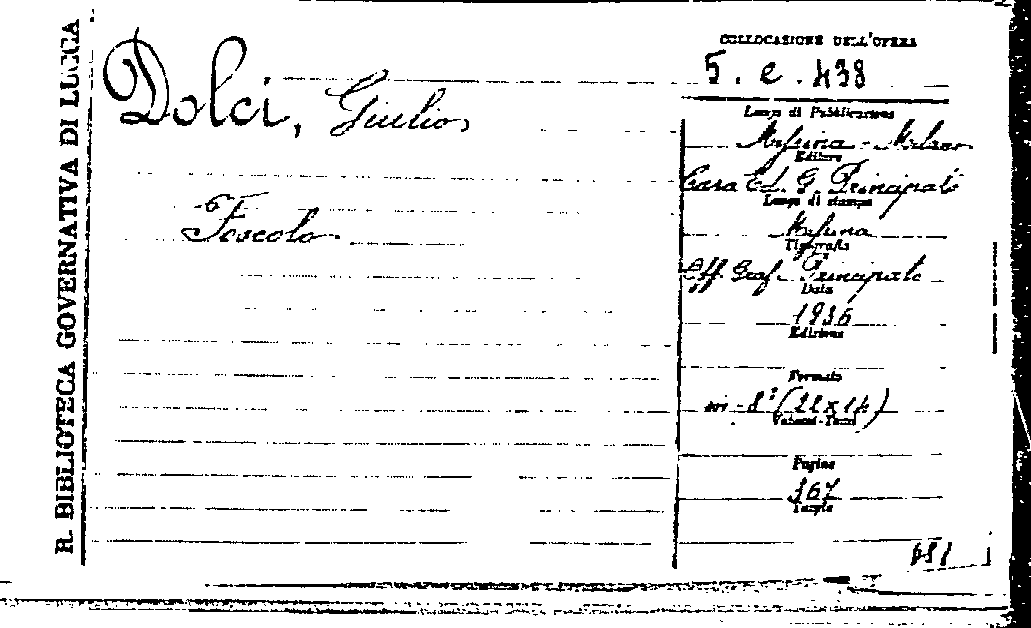 R. BIBLIOTECA GOVERNATIVA DI LUCCA
Dolci, Giulio
Foscolo
COLLOCAZIONE DELL'OPERA
5. e. 438
Luogo di Pubblicazione
Messina - Milano
Editore
Casa Ed. G. Principato
Luogo di stampa
Messina
Tipografia
Off. Graf. Principato
Data
1936
Edizione
Formato
in-8° (22x14)
Volumi-Tomi
Pagine
167
Tavole